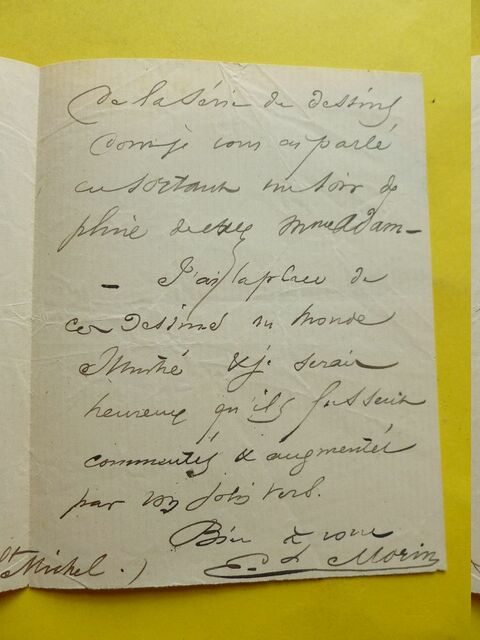 de la série de dessins
dont je vous ai parlé
en sortant un soir de
pluie de chez Mme Adam —
— J'ai la place de
ces dessins au Monde
Illustré & je serais
heureux qu'ils fussent
commentés & augmentés
par vos jolis vers.
Bien à vous
E. Morin
St Michel.)